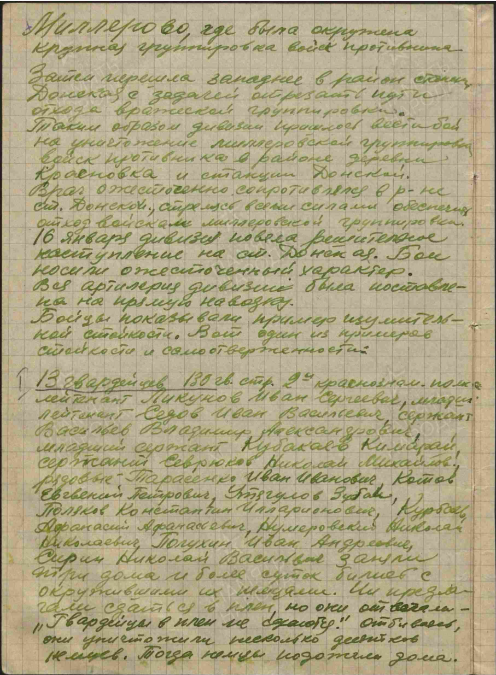 Миллерово, где была окружена
крупная группировка войск противника.
Затем перешла западнее в район станц
Донская с задачей отрезать пути
отхода вражеской группировки.
Таким образом дивизии пришлось вести бой
на уничтожение миллеровской группировки
войск противника в районе деревни
Красновка и станции Донской.
Враг ожесточенно сопротивлялся в р-не
ст. Донской, стремясь всеми силами обеспечить
отход войскам миллеровской группировки
16 января дивизия повела решительное
наступление на ст. Донская. Бои
носили ожесточенный характер.
Вся артилерия дивизии была поставле-
на на прямую наводку.
Бойцы показывали пример изумитель-
ной стойкости. Вот один из примеров
стойкости и самоотверженности:
13 гвардейцев 130 гв. стр. 2й краснознам. полка
лейтенант Ликунов Иван Сергеевич, младш.
лейтенант Седов Иван Васильевич, сержант
Васильев Владимир Александрович,
младший сержант Кубакаев
сержант Севрюков Николай Михайлов.
рядовые: Тарасенко Иван Иванович, Котов
Евгений Петрович, Утягулов Зубай,
Поляков Константин Илларионович, Курбаев
Афанасий Афанасьевич, Немеровский Николай
Николаевич, Полухин Иван Андреевич,
Сирин Николай Васильевич заняли
три дома и более суток бились с
окружившими их немцами. Им предла-
гали сдаться в плен, но они отвечали –
„Гвардейцы в плен не сдаются!" отбиваясь,
они уничтожили несколько десятков
немцев. Тогда немцы подожгли дома.